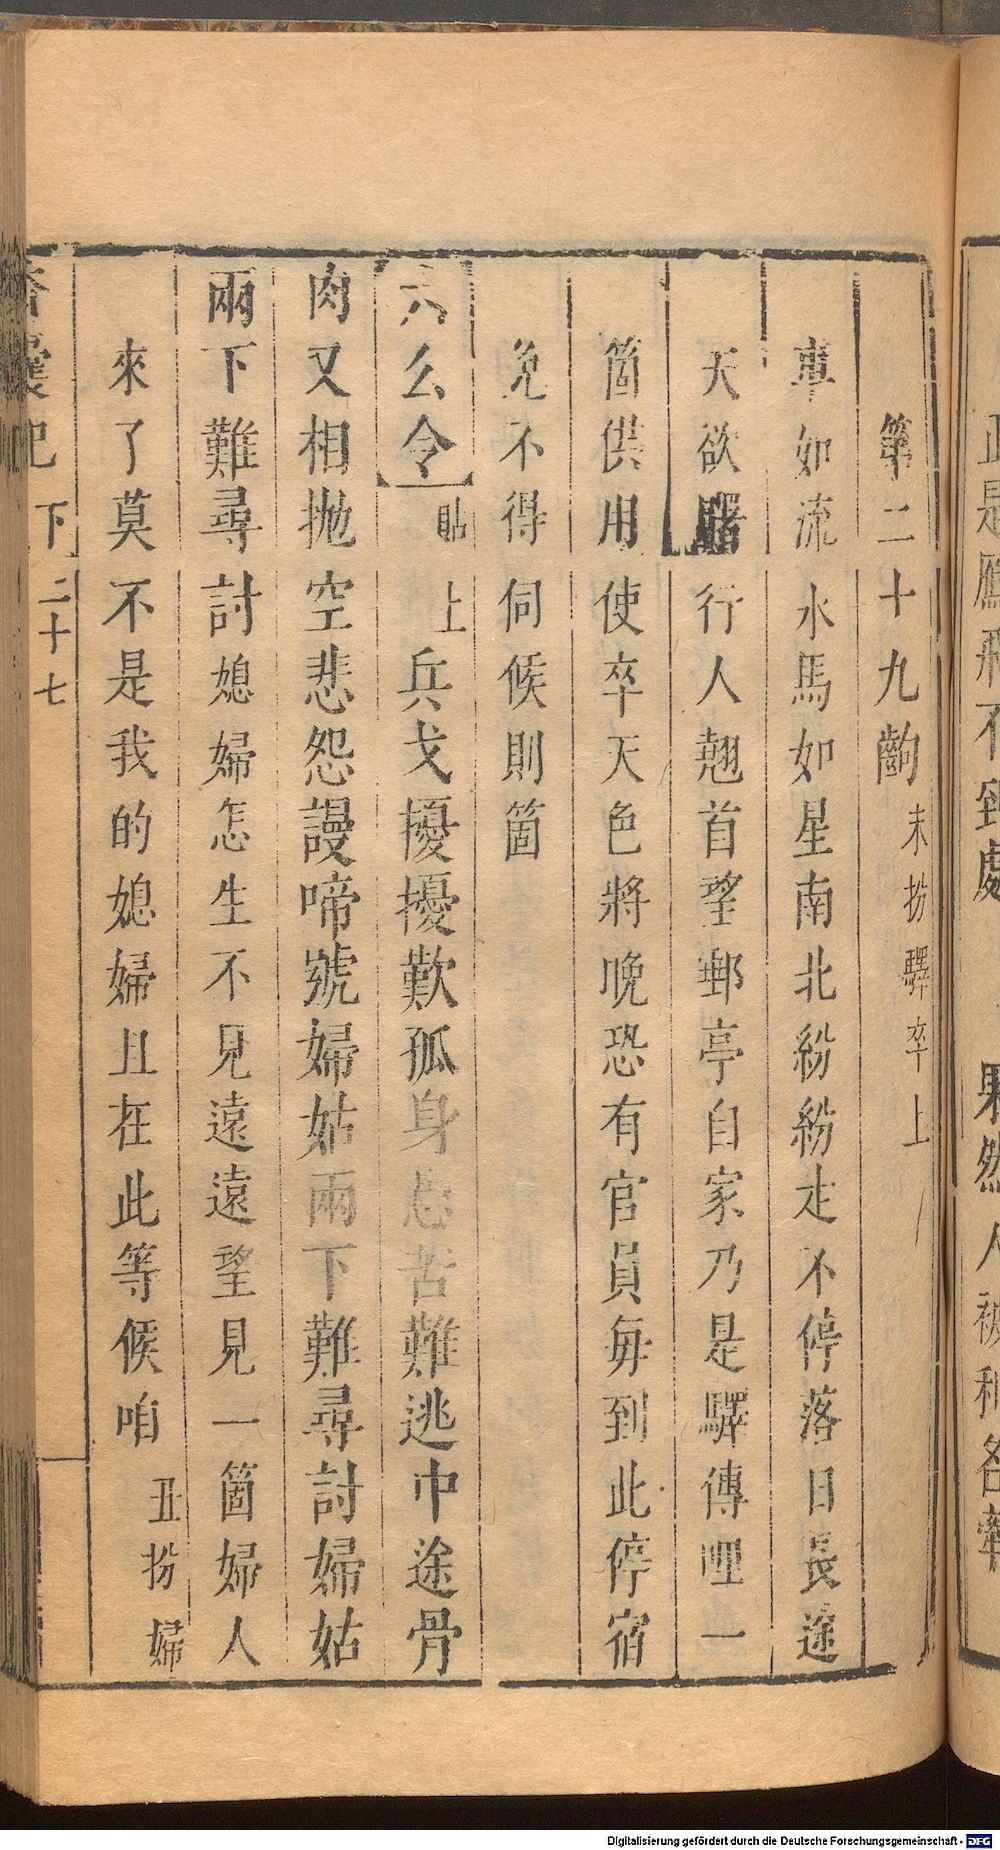 第二十九齣末扮驛卒上
車如流水馬如星南北紛紛走不停落日長途
天欲曙行人翹首望郵亭自家乃是驛傳哩一
箇供用使卒天色將晚恐有官員每到此停宿
免不得伺候則箇
六么令貼上兵戈擾擾歎孤身苦難逃中途骨
肉又相拋空悲怨謾啼號婦姑兩下難尋討婦姑
兩下難尋討媳婦怎生不見遠遠望見一箇婦人
來了莫不是我的媳婦且在此等候咱丑扮婦
香囊記 下 二十七
是鴈飛不到處 果然人被利名牽
Digitalisierung gefördert durch die Deutsche Forschungsgemeinschaft - DFG